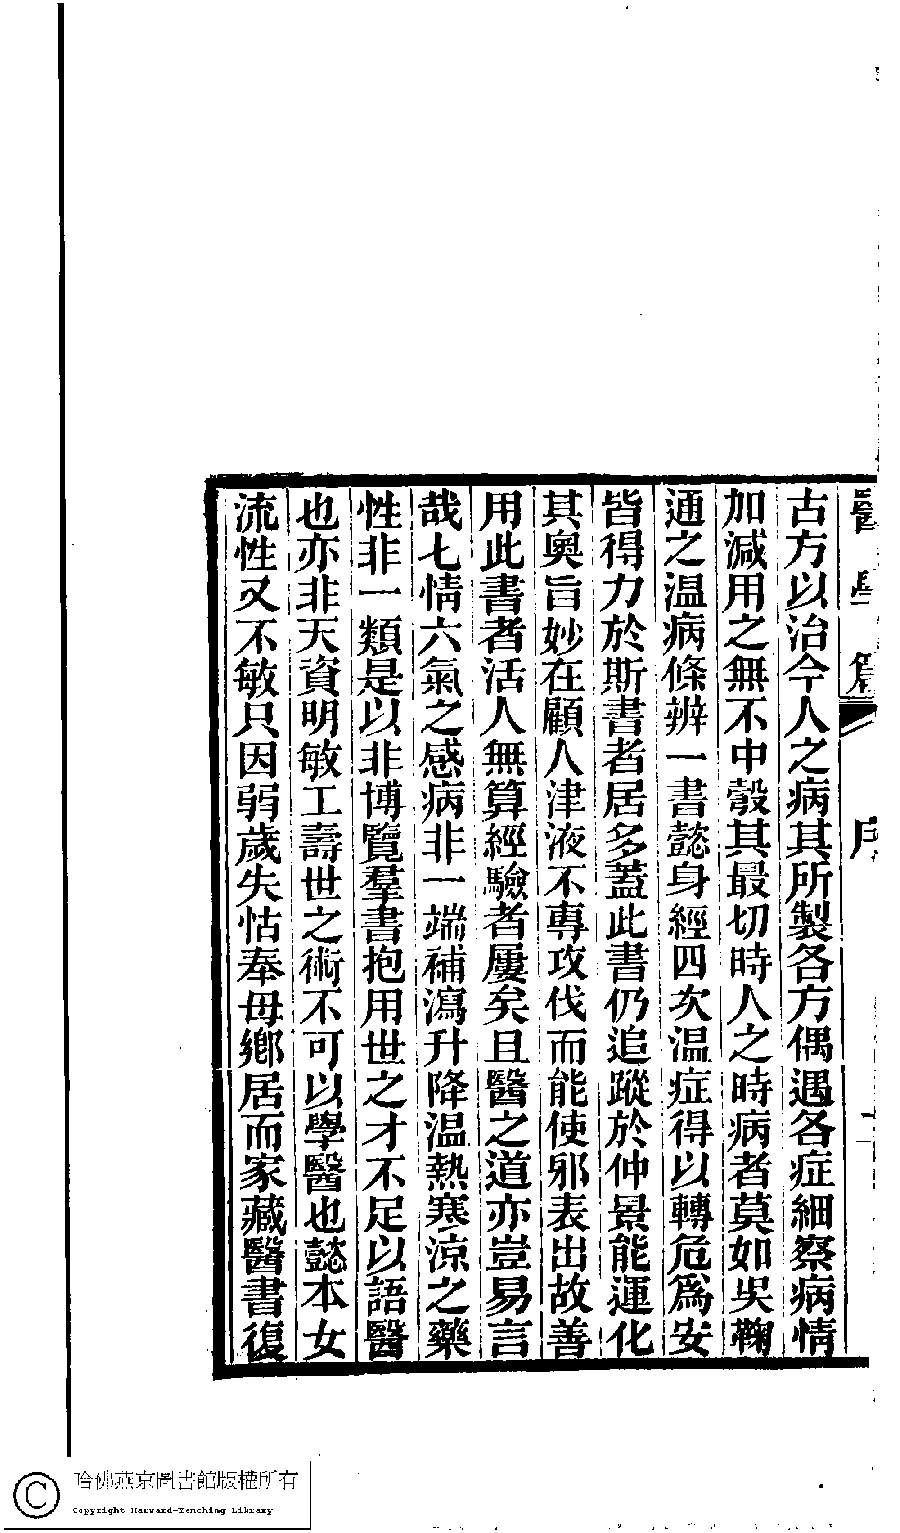 古方以治今人之病其所製各方偶遇各症細察病情
加減用之無不中彀其最切時人之時病者莫如吳鞠
通之温病條辨一書懿身經四次温症得以轉危爲安
皆得力於斯書者居多蓋此書仍追蹤於仲景能運化
其奥旨妙在顧人津液不專攻伐而能使邪表出故善
用此書者活人無算經驗者屢矣且醫之道亦豈易言
哉七情六氣之感病非一端補瀉升降温熱寒涼之藥
性非一類是以非博覽羣書抱用世之才不足以語醫
也亦非天資明敏工壽世之術不可以學醫也懿本女
流性又不敏只因弱歲失怙奉母鄉居而家藏醫書復
哈佛燕京圖書館版權所有
Copyright Harvard-Yenching Library